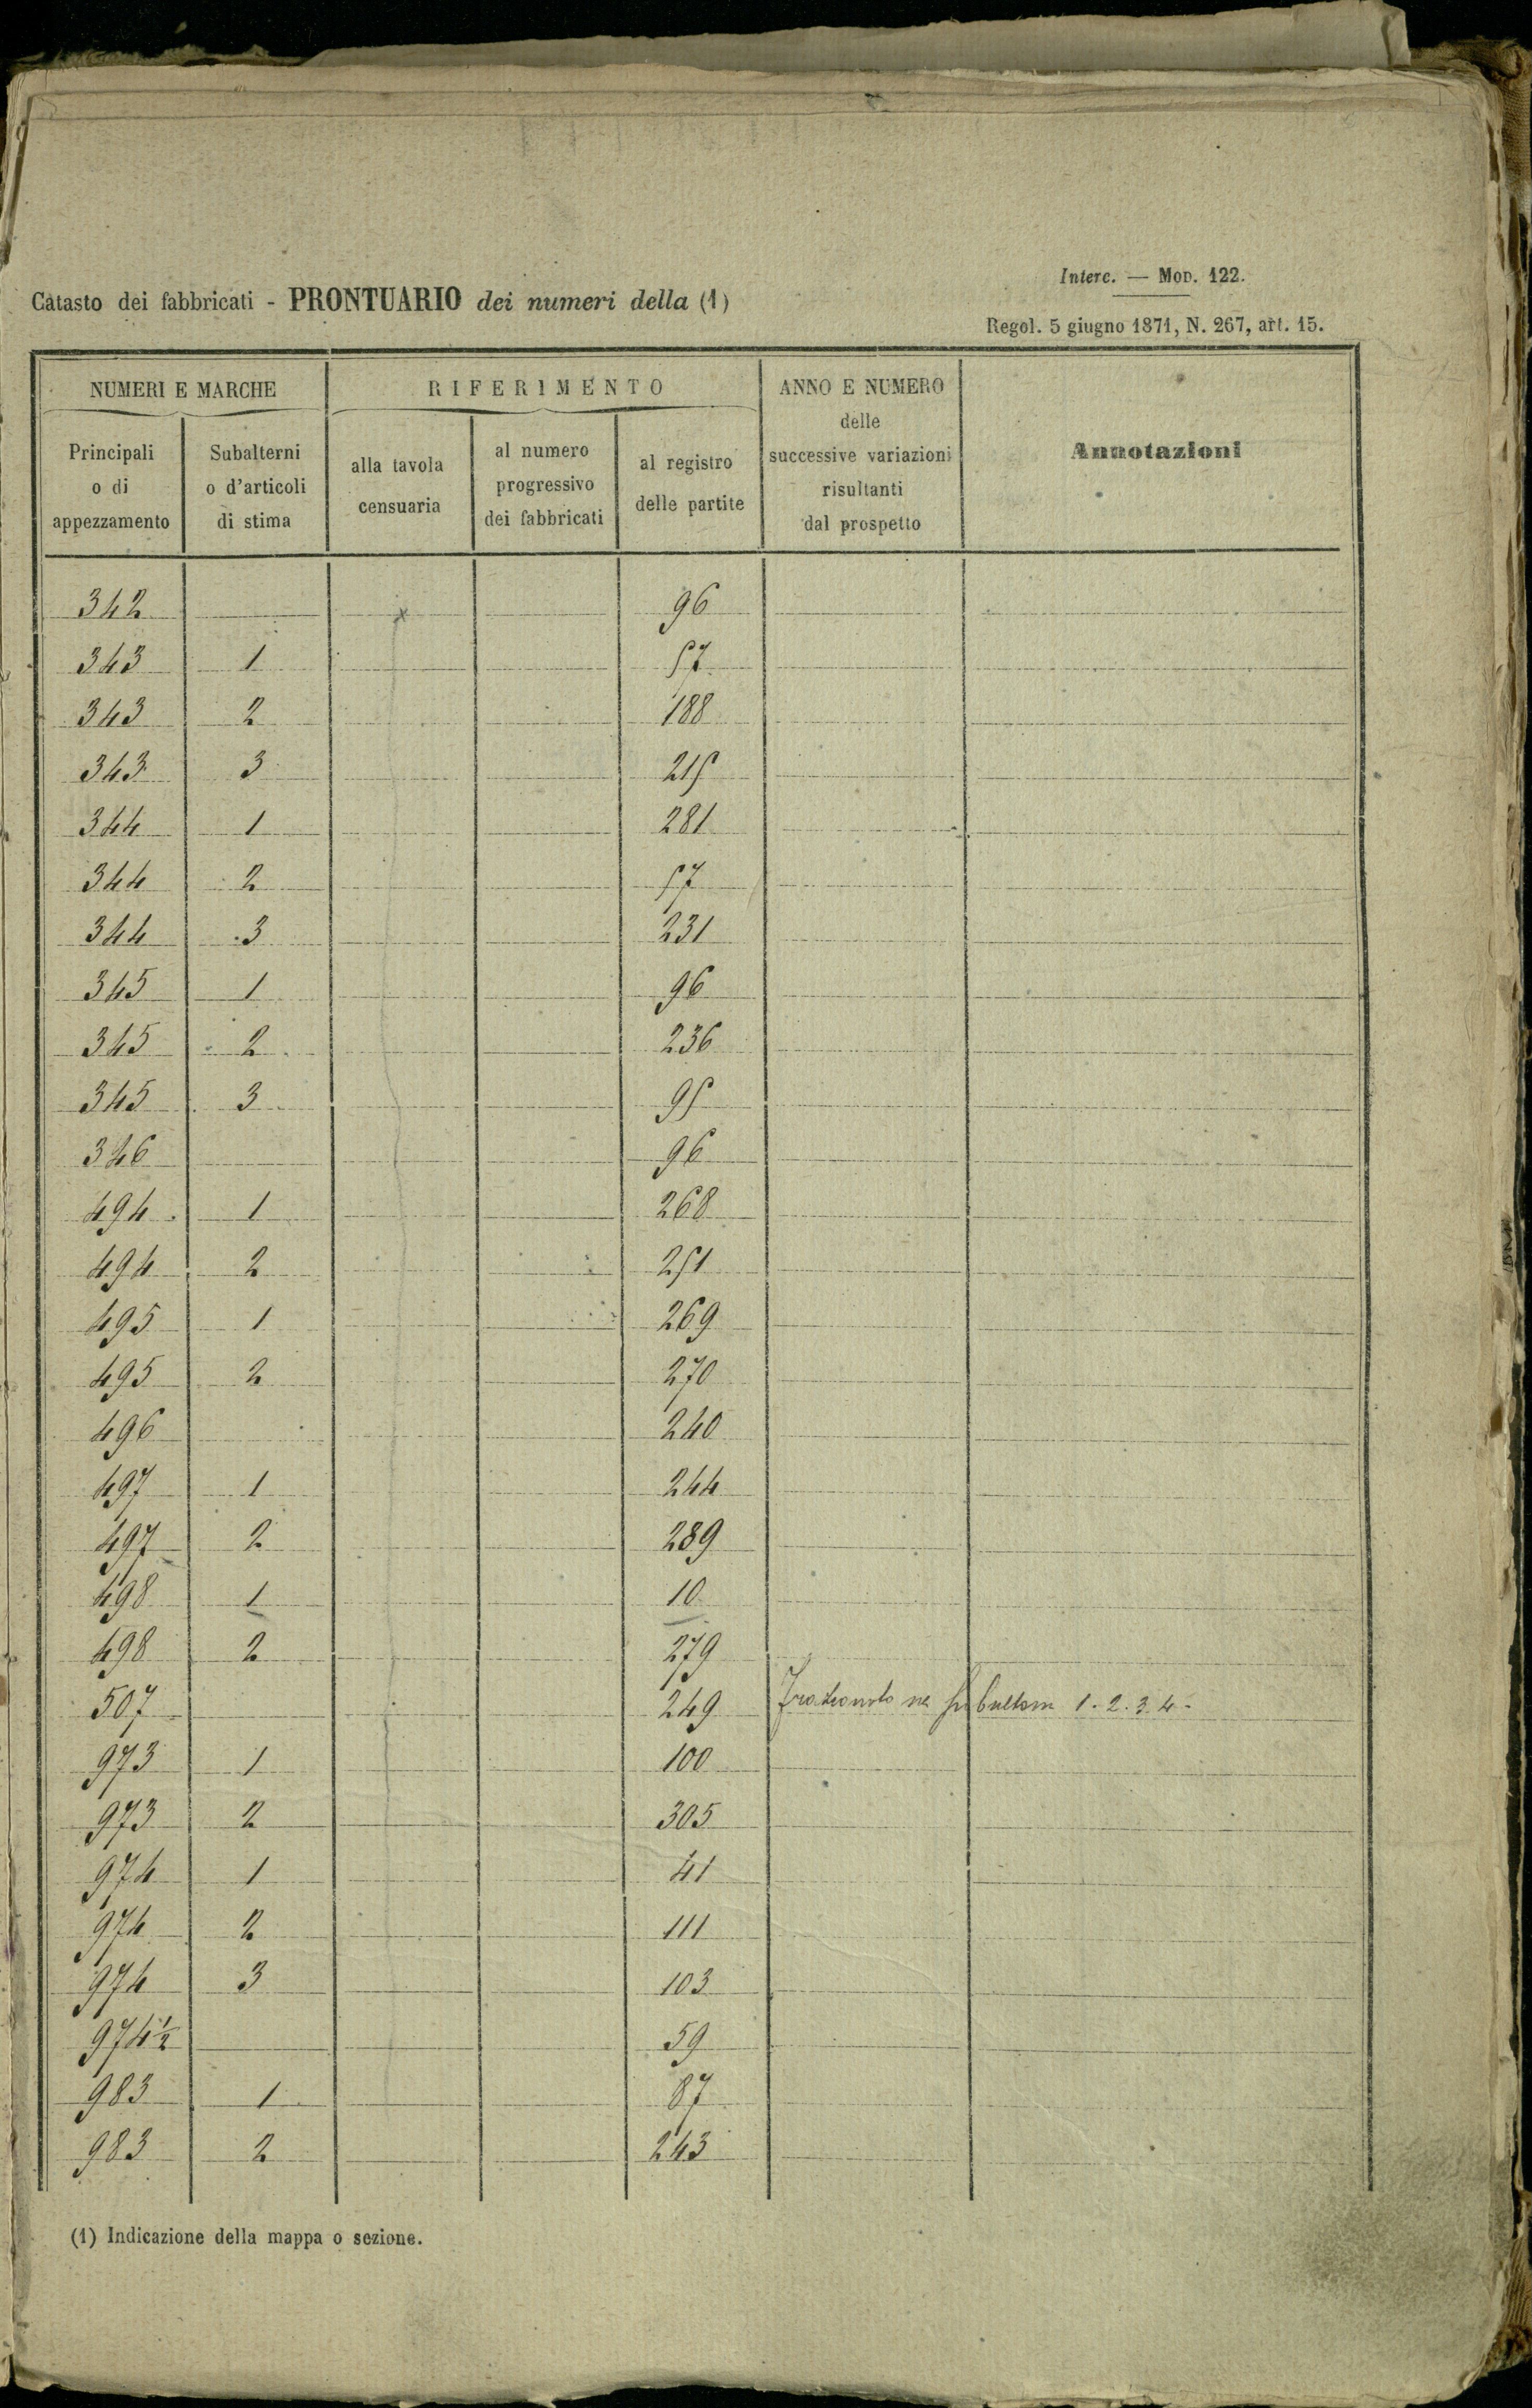 Interc. — Mod. 122.
Catasto dei fabbricati - PRONTUARIO dei numeri della (1)
Regol. 5 giugno 1871, N. 267, art. 15.
NUMERI E MARCHE RIFERIMENTO ANNO E NUMERO delle successive variazioni risultanti dal prospetto Annotazioni
Principali o di appezzamento Subalterni o d'articoli di stima alla tavola censuaria al numero progressivo dei fabbricati al registro delle partite
342 x 96
343 1 57
343 2 188
343 3 215
344 1 281
344 2 57
344 3 231
345 1 96
345 2 236
345 3 95
346 96
494 1 268
494 2 251
495 1 269
495 2 270
496 240
497 1 244
497 2 289
498 1 10
498 2 279
507 249 1. 2. 3. 4 -
973 1 100
973 2 305
974 1 41
974 2 111
974 3 103
974 1/2 59
983 1 87
983 2 243
(1) Indicazione della mappa o sezione.